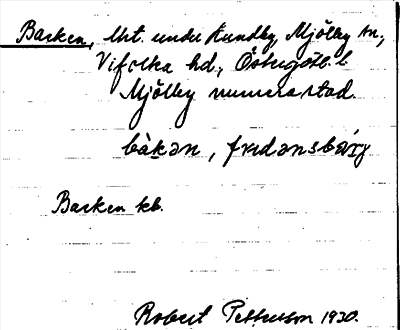 Backen, lht. under Kundby, Mjölby sn,
Vifolka hd, Östergötl. l
Mjölby numera stad.
bàkən, fridənsbärj
Backen kb.
Robert Pettersson 1930.